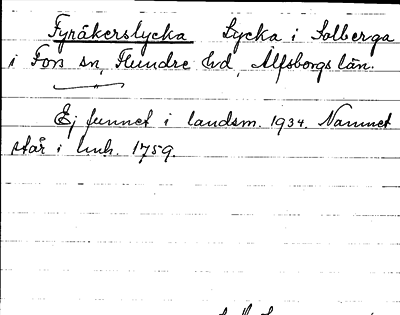 Fyråkerslycka Lycka i Solberga
i Fors sn, Flundre hd, Älfsborgs län.
Ej funnet i landsm. 1934. Namnet
står i lmh. 1759.